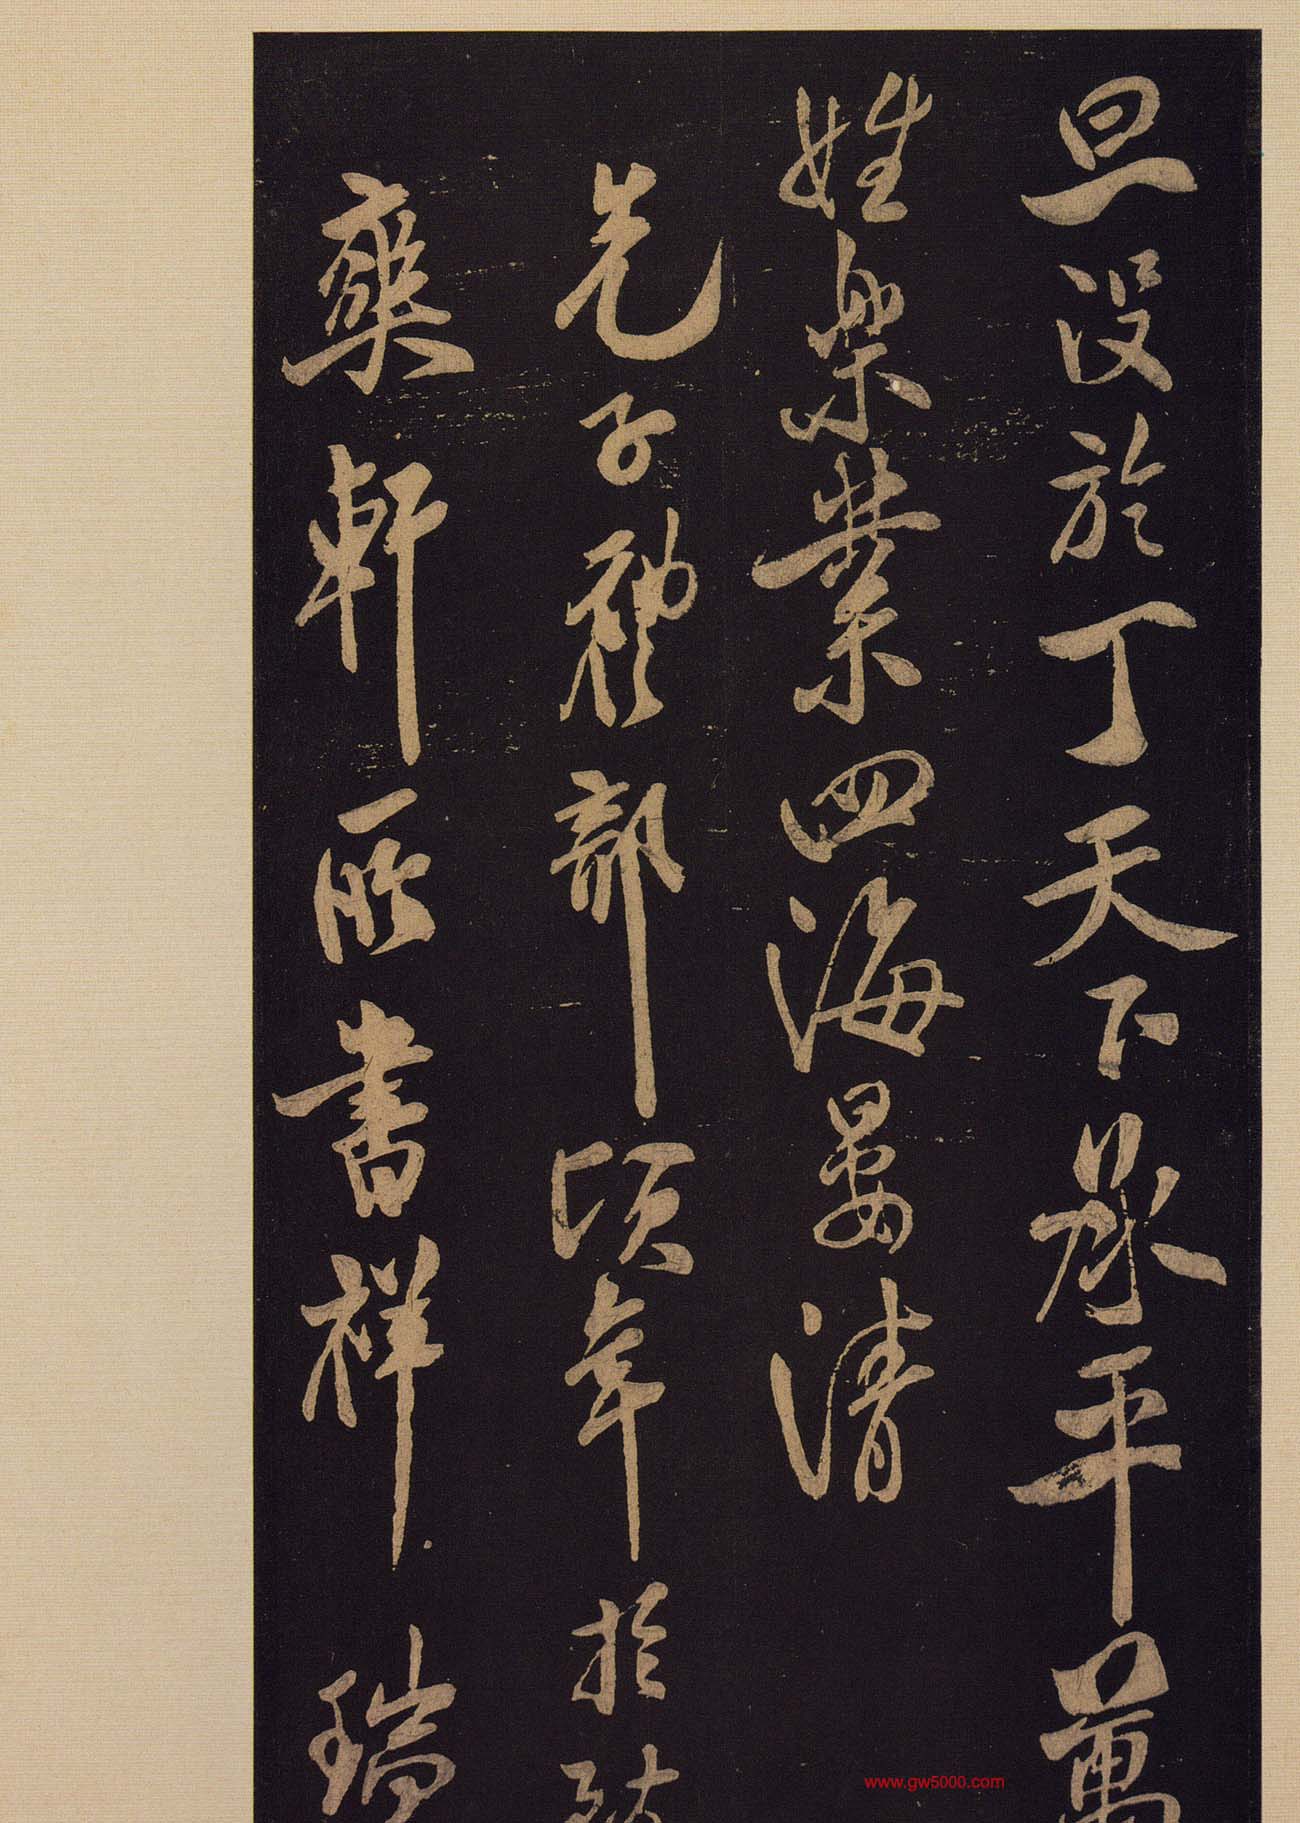 旦沒於丁天下承平萬
姓樂業四海晏清
先子禮部頃年於
奕軒所書祥瑞
www.gw5000.com